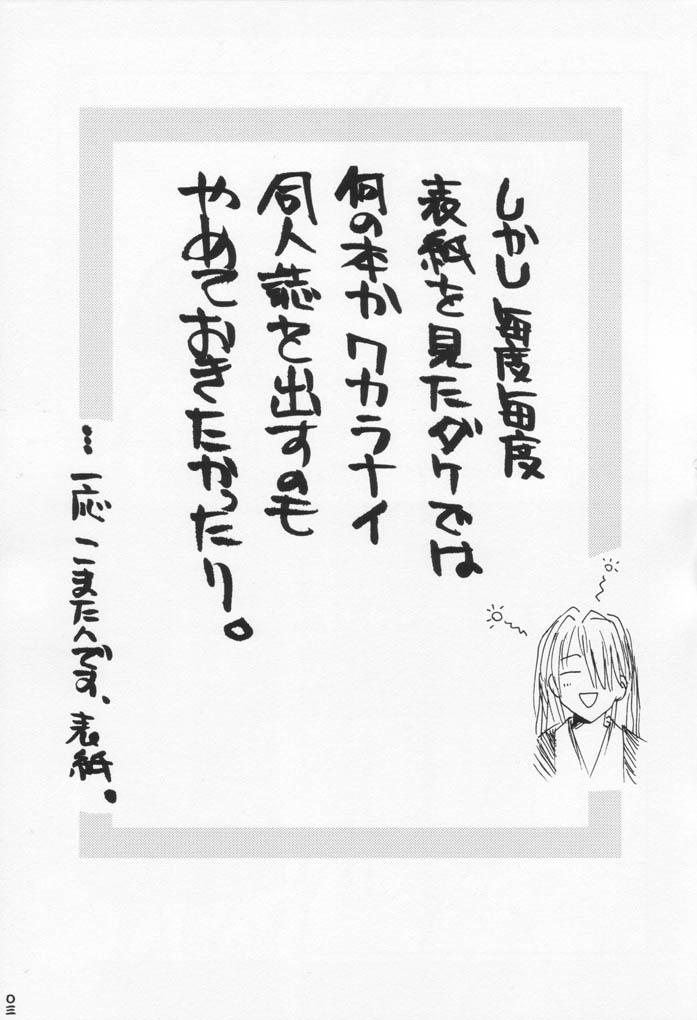 しかし毎度毎度
表紙を見たダケでは
何の本かワカラナイ
同人誌を出すのも
やめておきたかったり。
…一応こまたんです、表紙。
〇三